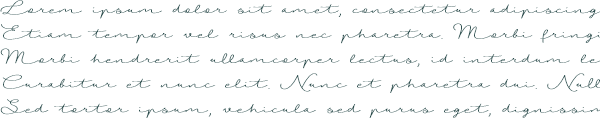 Lorem ipsum dolor sit amet, consectetur adipiscing
Etiam tempor vel risus nec pharetra. Morbi fringi
Morbi hendrerit ullamcorper lectus, id interdum le
Curabitur et nunc elit. Nunc et pharetra dui. Null
Sed tortor ipsum, vehicula sed purus eget, dignissin